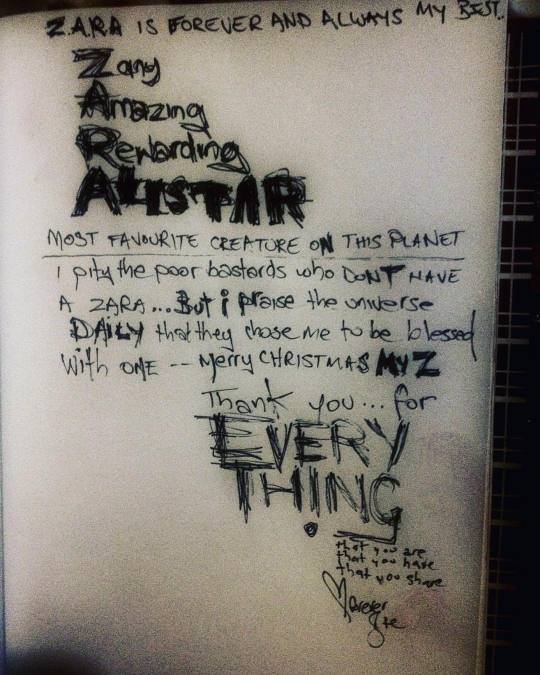 Z.A.R.A IS FOREVER AND ALWAYS MY BEST.
Zany
Amazing
Rewarding
ALISTAR
MOST FAVOURITE CREATURE ON THIS PLANET
I pity the poor bastards who DONT HAVE
A ZARA... But i praise the universe
DAILY that they chose me to be blessed
with ONE -- Merry CHRISTMAS MY Z
Thank you... for
EVERY
THING
that you are
that you have
that you share
forever